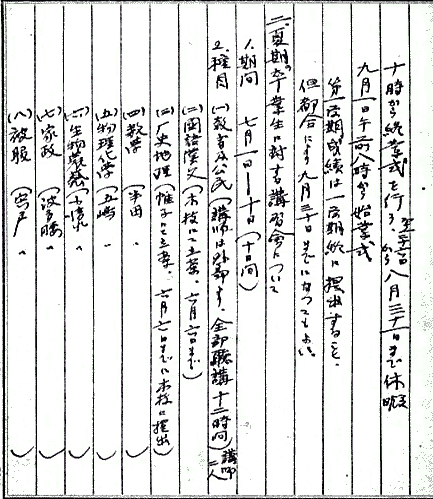 十時から終業式を行う、七月二十一日から八月三十一日まで休暇
九月一日午前八時から始業式
第一学期成績は一学期終に提出すること、
但都合により九月三十日までになってもよい。
二、夏期の卒業生に対する講習会について
1、期間　七月一日—十日(十日間)
2、種目(一)教育及公民(講師は外部す、全部聴講十二時間)講師二人
(二)国語漢文(本校にて立案、六月六日まで)
(三)歴史地理(権子にて立案、六月六日までに本校に提出)
(四)数学(半田　〃　)
(五)物理化学(五嶋　〃　)
(六)生物農芸(　〃　)
(七)家政(波多腰　〃　)
(八)被服(宮戸　〃　)